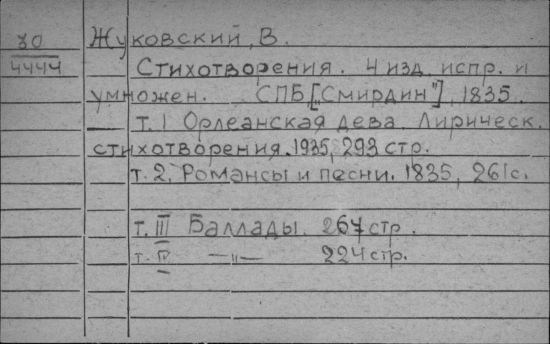 30
4444
Жуковский, В.
Стихотворения. 4 изд. испр. и
умножен. СПБ ["Смирдин"], 1835.
т. 1 Орлеанская дева. Лирическ.
стихотворения. 1935, 293 стр.
т. 2. Романсы и песни. 1835, 261 с.
т. III Баллады. 267 стр.
т. IV —"— 224 стр.